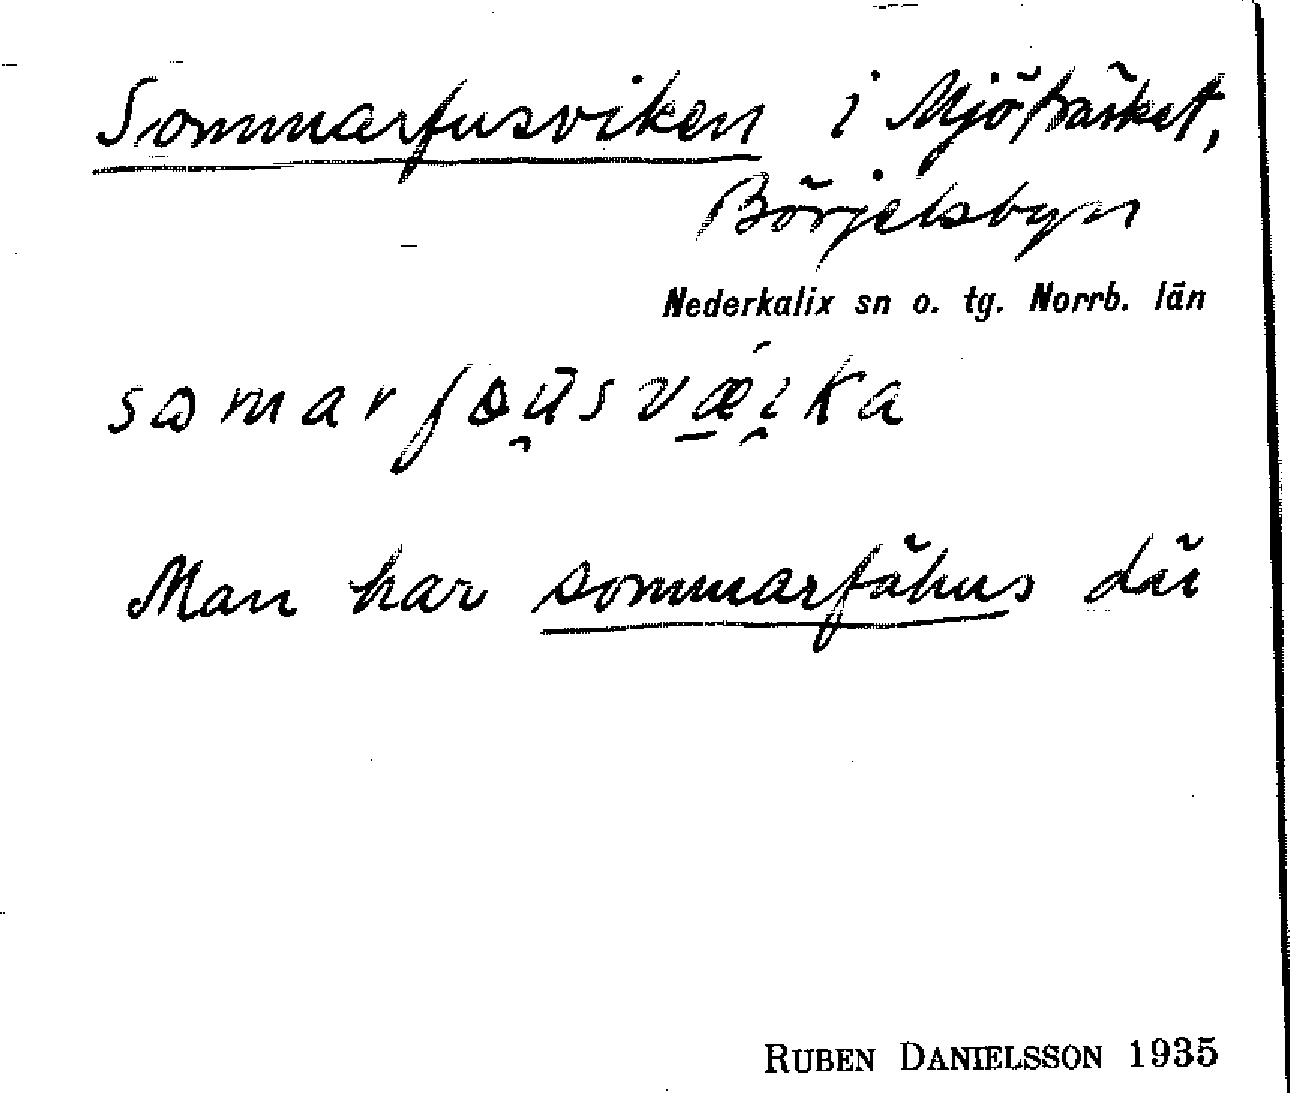 Sommarfusviken i Mjöträsket,
Börjelsbyn
Nederkalix sn o. tg. Norrb. län
Man har sommarfähus där
RUBEN DANIELSSON 1935